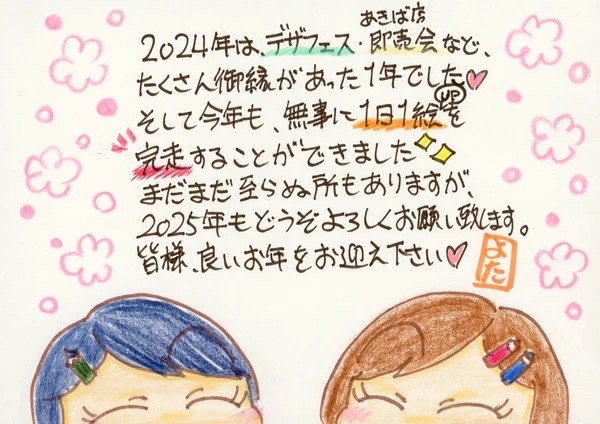 あきば店
2024年は、デザフェス・即売会など、
たくさん御縁があった1年でした♡
UP
そして今年も、無事に1日1絵を
完走することができました
まだまだ至らぬ所もありますが、
2025年もどうぞよろしくお願い致します。
皆様、良いお年をお迎え下さい♡
よた